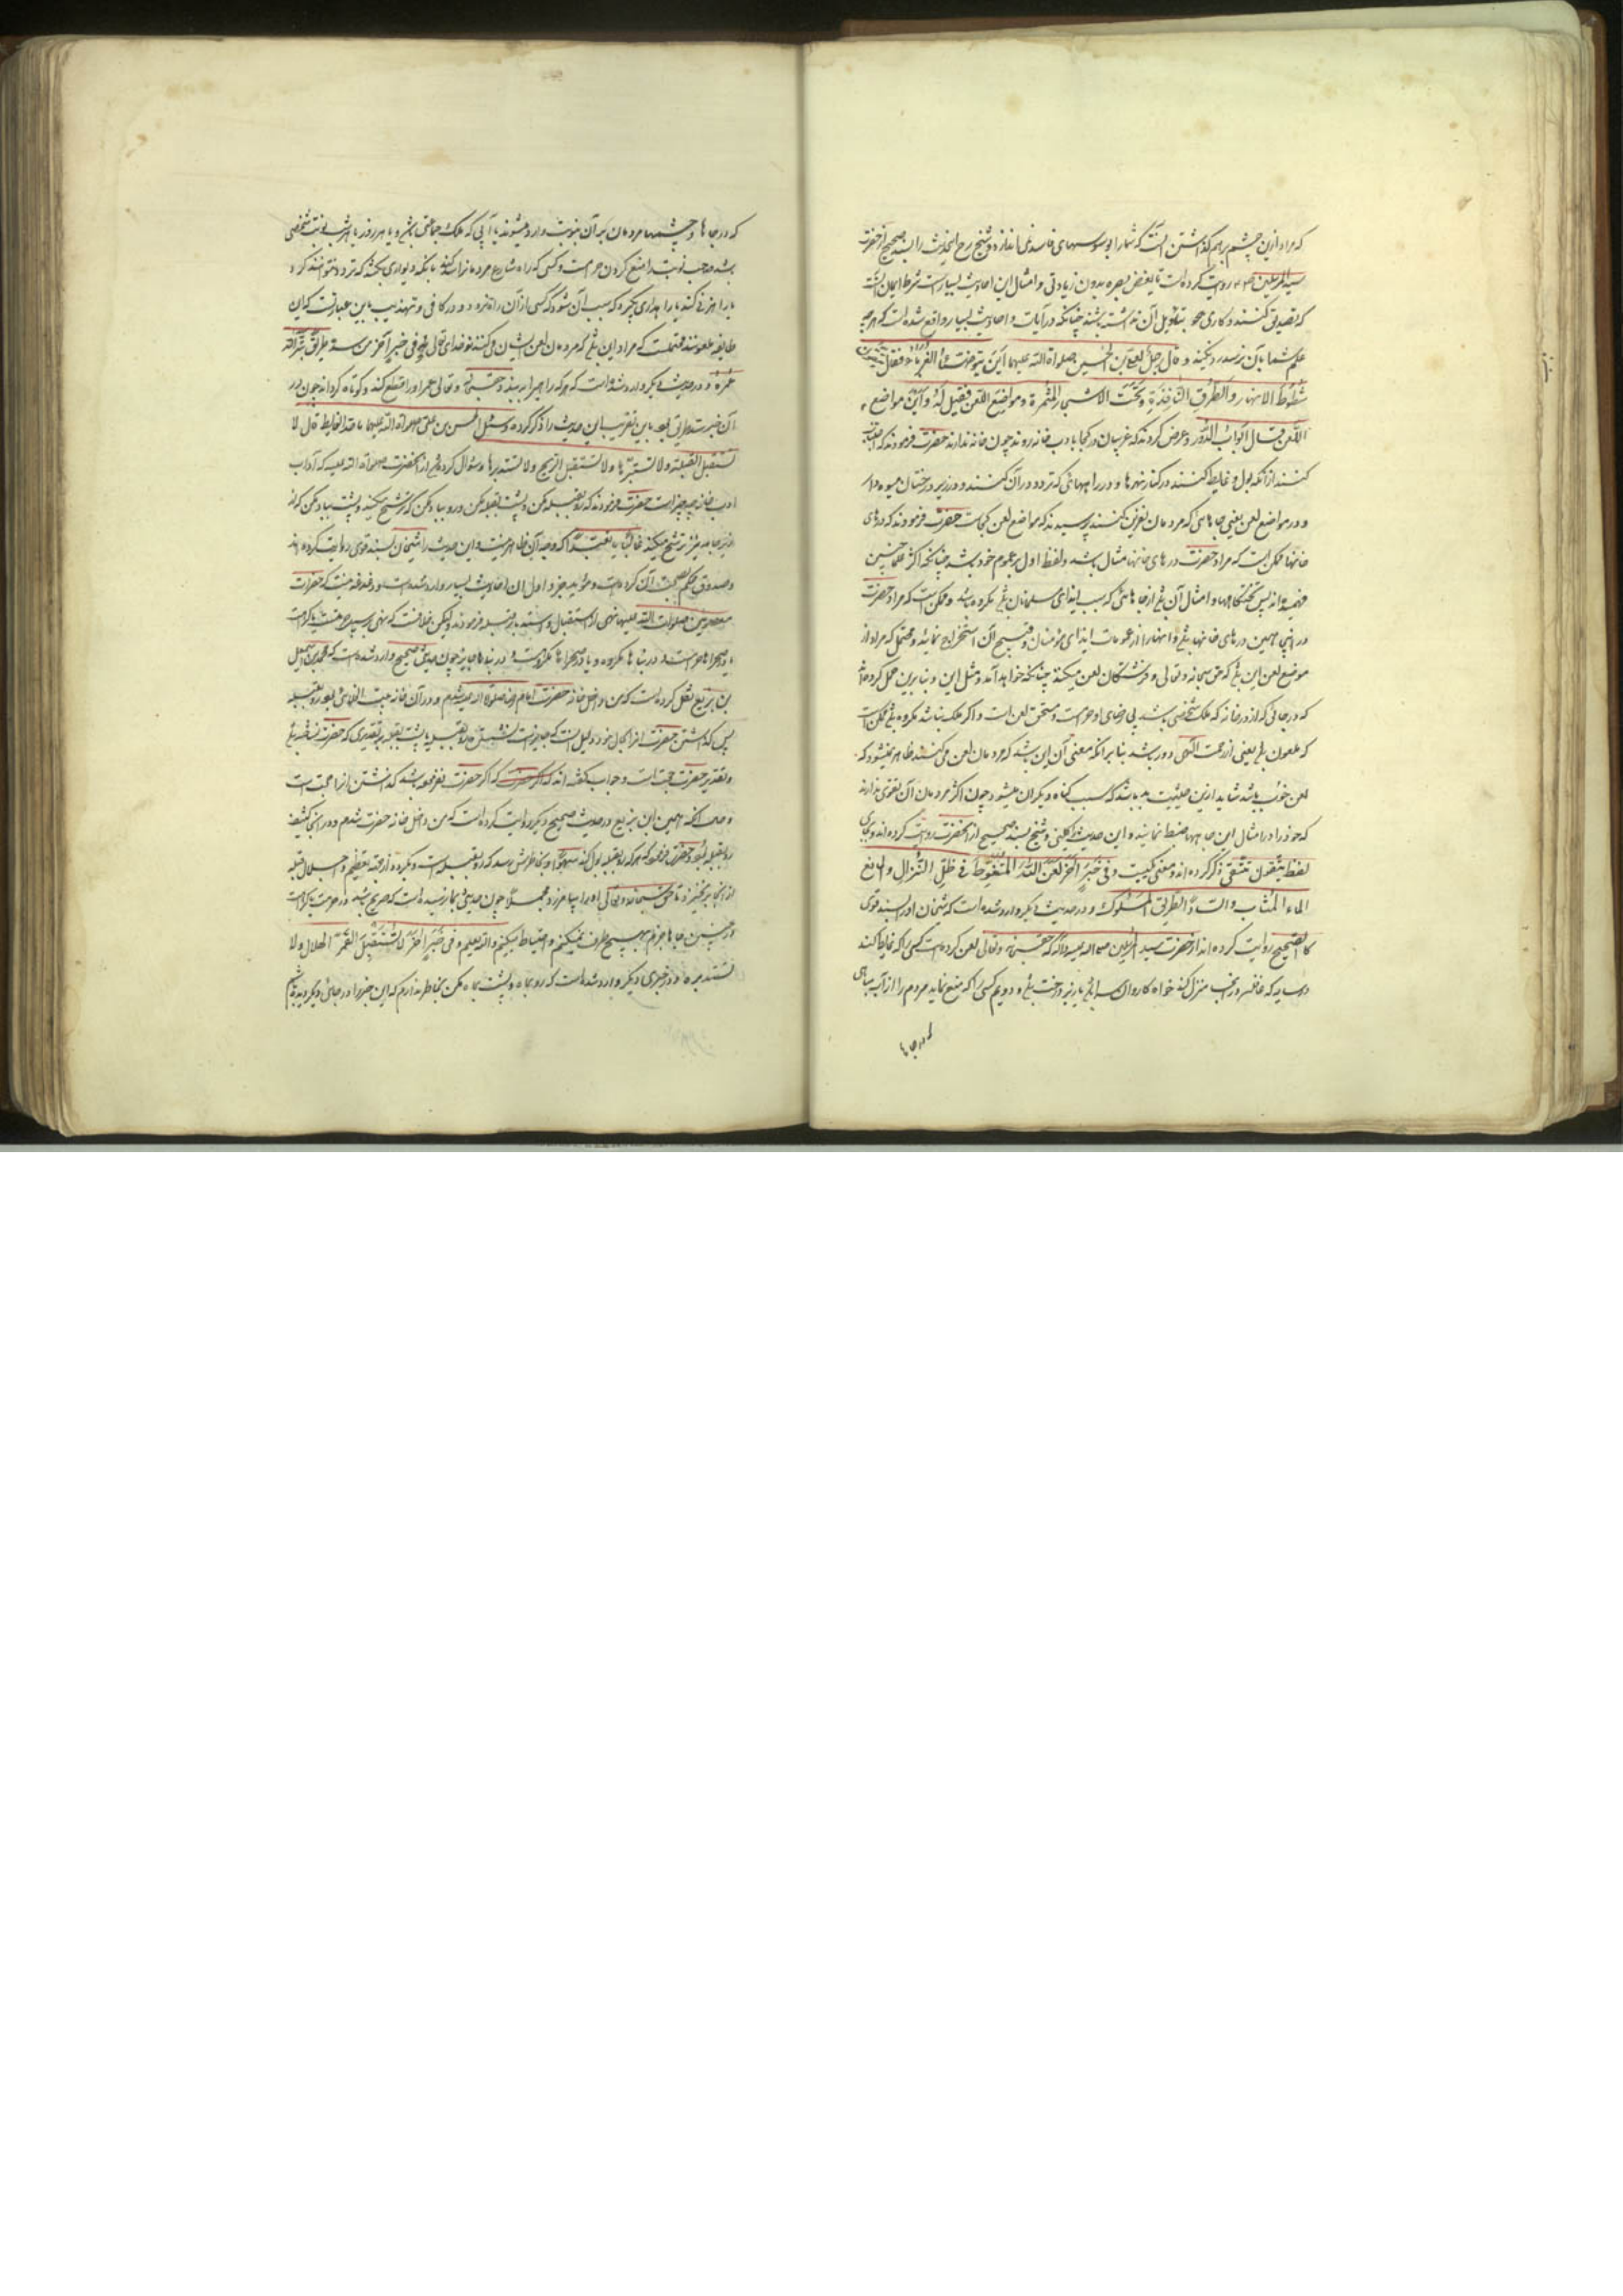 که مراد ازین چشم برهم گذاشتن آنست که شما را بوسوسهای فاسد نمی‌اندازد و شیخ رح این حدیث را بسند صحیح از حضرت
سید المرسلین روایت کرده است تا بغض بصره بدون زیادتی و امثال این احادیث بسیار است شرط ایمان آنست
که تصدیق کنند و کاری بتاویل آن نداشته باشند چنانکه در آیات و احادیث بسیار واقع شده است که هر چه
علم شما بآن نرسد رد مکنید و قال رجل لعلی بن الحسین صلواة الله علیهما این یتوضأ الغرباء فقال
شطوط الانهار و الطرق النافذة و تحت الاشجار المثمرة و مواضع اللعن فقیل له و این مواضع
اللعن قال ابواب الدور و عرض کردند که غریبان در کجا بادب خانه روند چون خانه ندارند حضرت فرمودند که اجتناب
کنند از آنکه بول و غایط کنند در کنار نهرها و در راههائی که تردد در آن کنند و در زیر درختان میوه دار
و در مواضع لعن یعنی جاهای که مردمان نفرین کنند پرسیدند که مواضع لعن کجاست حضرت فرمودند که درهای
خانها ممکن است که مراد حضرت درهای خانها مثال باشد و لفظ اول بر عموم خود باشد چنانکه اکثر علما چنین
فهمیده‌اند پس و امثال آن از جاهائی که سبب ایذای مسلمانان مکروه باشد و ممکن است که مراد حضرت
در اینجا همین درهای خانها و اینها را از عمومات ایذای مؤمنان و قبح آن استخراج نمایند و محتمل که مراد از
موضع لعن این که حق سبحانه و تعالی و فرشتگان لعن میکنند چنانکه خواهد آمد و مثل این و بنابرین حمل کرده
که در جائی که از در خانه که ملک شخصی باشد بی رضای او حرام است و مستحق لعن است و اگر ملک نباشد مکروه ممکن است
که ملعون یعنی از رحمت الهی دور باشد بنا بر آنکه معنی آن این باشد که مردمان لعن می‌کنند ظاهر میشود که
لعن خوب باشد شاید ازین حیثیت بد باشد که سبب گناه دیگران میشود چون اکثر مردمان آن تقوی ندارند
که خود را در امثال این جاها ضبط نمایند و این حدیث را کلینی و شیخ بسند صحیح از آنحضرت روایت کرده‌اند و بجای
لفظ یتقون تتقی ذکر کرده‌اند و معنی یکیست و فی خبر آخر لعن الله المتغوط فی ظل النزال و المانع
الماء المنتاب و الساد الطریق المسلوک و در حدیث دیگر وارد شده است که شیخان او را بسند قوی
کالصحیح روایت کرده‌اند از حضرت سید المرسلین صلی الله علیه و آله که حق سبحانه و تعالی لعن کرده است کسی را که غایط کند
در سایه که قافله در آنجا منزل کند خواه کاروان سرا یا زیر درخت و دویم کسی را که منع نماید مردم را از آب مباهی
که در جاها
که در جاها و چشمها مردمان بر آن بنوبت وارد میشوند یا آبی که ملک جماعتی باشد و یا هر روز یا هر شب نوبت شخصی
باشد صاحب نوبت را منع کردن حرام است و کسی که راه شارع مردمان را سد کند بآنکه دیواری بکشد که تردد نتوانند کرد
یا راهزنی کند یا راهداری بگیرد که سبب آن شود که کسی از آن راه نرود و در کافی و تهذیب باین عبارتست که این
طایفه ملعونند محتملست که مراد این که مردمان لعن ایشان می‌کنند و فی خبر آخر من سد طریقا بتر الله
عمره و در حدیث دیگر وارد شده است که هر که راهی را ببندد حق سبحانه و تعالی عمر او را قطع کند و کوتاه گرداند چون در
آن خبر سد طریق بود باین تقریب این حدیث را ذکر کرده و سئل الحسن بن علی صلواة الله علیهما ما حد الغایط قال لا
تستقبل القبلة و لا تستدبرها و لا تستقبل الریح و لا تستدبرها و سؤال کردند از آنحضرت صلواة الله علیه که آداب
ادب خانه چه چیز است حضرت فرمودند که رو بقبله مکن و پشت بقبله مکن و رو بباد مکن که ترشح میکند و پشت بباد مکن که از
ترشح میکند غالبا یا تعبدا که وجه آن ظاهر نیست و این حدیث را شیخان بسند قوی روایت کرده‌اند
و صدوق حکم بصحت آن کرده است و مؤید جزو اول آن احادیث بسیار وارد شده است و دغدغه نیست که حضرات
معصومین صلوات الله علیهم نهی از استقبال و استدبار قبله فرمودند و لیکن خلافست که نهی بر سبیل حرمتست یا کراهت
در صحراها حرامست و در بناها مکروه و یا در صحراها مکروهست و در بناها جایز چون حدیث صحیح وارد شده است که محمد بن اسمعیل
بن بزیع نقل کرده است که من داخل خانه حضرت امام رضا صلواة الله علیه شدم و در آن خانه بیت الخلائی بود رو بقبله
پس گذاشتن حضرت آنرا بحال خود دلیل است که جایز است نشستن رو بقبله یا پشت بقبله بر تقدیری که حضرت نشسته
و تقریر حضرت حجت است و جواب گفته‌اند که اگر حضرت تغیر نداده باشد گذاشتن آنرا حجت است
و حال آنکه همین ابن بزیع در حدیث صحیح دیگر روایت کرده است که من داخل خانه حضرت شدم و در آنجا کنیف
رو بقبله بود و حضرت فرمود که هر که رو بقبله بول کند سهوا و بخاطرش رسد که رو بقبله است و بگردد از جهة تعظیم و اجلال قبله
از آنجا برنخیزد تا حق سبحانه و تعالی او را بیامرزد مجملا چون حدیثی بما نرسیده است که صریح باشد در حرمت یا کراهت
در چنین جاها جزم بهیچ طرف نمیکنیم و احتیاط میکنیم و الله یعلم و فی خبر آخر لا تستقبل القمر الهلال و لا
تستدبره و در خبری دیگر وارد شده است که رو بماه و پشت بماه مکن بخاطر ندارم که این خبر را در جای دیگر دیده باشم